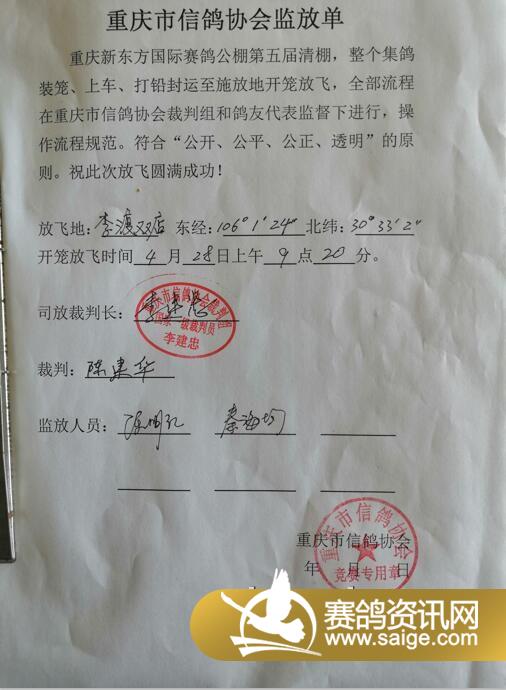 重庆市信鸽协会监放单
重庆新东方国际赛鸽公棚第五届清棚，整个集鸽
装笼、上车、打铅封运至施放地开笼放飞，全部流程
在重庆市信鸽协会裁判组和鸽友代表监督下进行，操
作流程规范。符合“公开、公平、公正、透明”的原
则。祝此次放飞圆满成功！
放飞地：李渡双店 东经：106°1′24″ 北纬：30°33′2″
开笼放飞时间 4 月 28 日上午 9 点 20 分。
司放裁判长：李建忠
重庆市信鸽协会裁判组
国家一级裁判员
李建忠
裁判：陈建华
监放人员：
重庆市信鸽协会
年 月 日
重庆市信鸽协会
竞赛专用章
赛鸽资讯网
www.saige.com